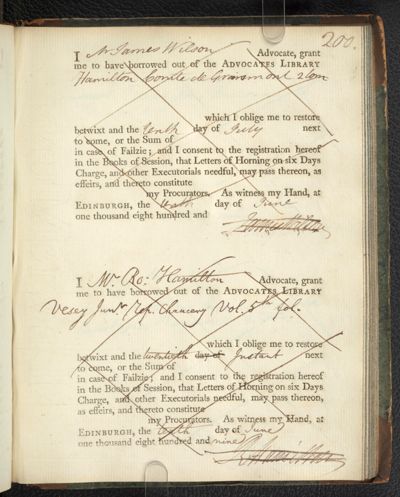 200.
I Mr James Wilson Advocate, grant
me to have borrowed out of the ADVOCATES LIBRARY
Hamilton Comte de Grammont 2 tom
which I oblige me to restore
betwixt and the tenth day of July next
to come, or the Sum of
in case of Failzie; and I consent to the registration hereof
in the Books of Session, that Letters of Horning on six Days
Charge, and other Executorials needful, may pass thereon, as
effeirs, and thereto constitute
my Procurators. As witness my Hand, at
EDINBURGH, the tenth day of June
one thousand eight hundred and
James Wilson
I Mr Ro: Hamilton Advocate, grant
me to have borrowed out of the ADVOCATES LIBRARY
Vesey Junr. Rep. Chancery Vol. 5th fol.
which I oblige me to restore
betwixt and the twentieth day of Instant next
to come, or the Sum of
in case of Failzie; and I consent to the registration hereof
in the Books of Session, that Letters of Horning on six Days
Charge, and other Executorials needful, may pass thereon,
as effeirs, and thereto constitute
my Procurators. As witness my Hand, at
EDINBURGH, the tenth day of June
one thousand eight hundred and nine
R. Hamilton